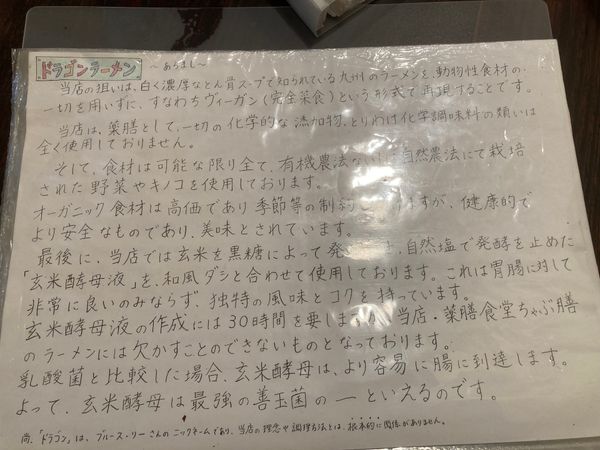 ドラゴンラーメン 〜あらまし〜
当店の狙いは、白く濃厚なとん骨スープで知られている九州のラーメンを、動物性食材の
一切を用いずに、すなわちヴィーガン(完全菜食)という形式で再現することです。
当店は、薬膳として、一切の化学的な添加物、とりわけ化学調味料の類いは
全く使用しておりません。
そして、食材は可能な限り全て、有機農法ないし自然農法にて栽培
された野菜やキノコを使用しております。
オーガニック食材は高価であり季節等の制約 ますが、健康的で
より安全なものであり、美味とされています。
最後に、当店では玄米を黒糖によって発 、自然塩で発酵を止めた
「玄米酵母液」を、和風ダシと合わせて使用しております。これは胃腸に対して
非常に良いのみならず、独特の風味とコクを持っています。
玄米酵母液の作成には30時間を要しますが、当店・薬膳食堂ちゃぶ膳
のラーメンには欠かすことのできないものとなっております。
乳酸菌と比較した場合、玄米酵母は、より容易に腸に到達します。
よって、玄米酵母は最強の善玉菌の一といえるのです。
尚、「ドラゴン」は、ブルース・リーさんのニックネームであり、当店の理念や調理方法とは、根本的に関係がありません。